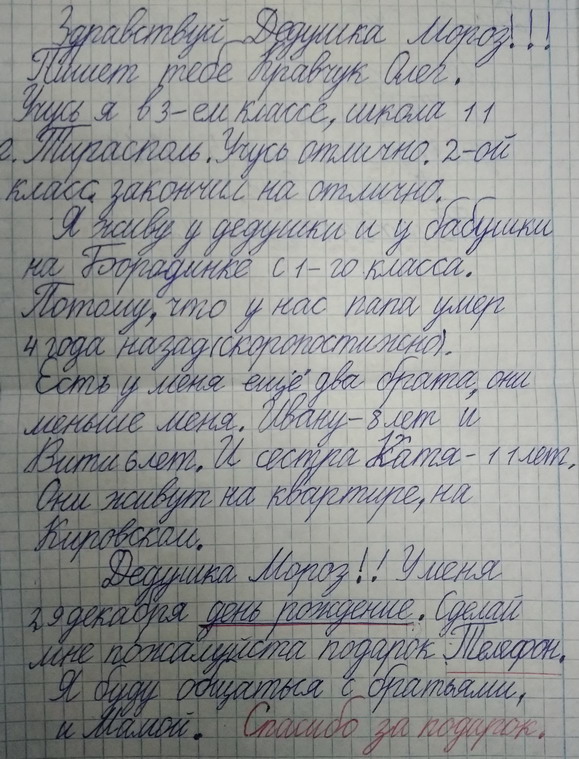 Здравствуй Дедушка Мороз!!!
Пишет тебе Кравчук Олег.
Учусь я в 3-ем классе, школа 11
г. Тирасполь. Учусь отлично. 2-ой
класс закончил на отлично.
Я живу у дедушки и у бабушки
на Бородинке с 1-го класса.
Потому, что у нас папа умер
4 года назад (скоропостижно).
Есть у меня ещё два брата, они
меньше меня. Ивану-8 лет и
Вити 6 лет. И сестра Катя-11 лет.
Они живут на квартире, на
Кировском.
Дедушка Мороз!! У меня
29 декабря день рождение. Сделай
мне пожалуйста подарок Телефон.
Я буду общаться с братьями,
и Мамой. Спасибо за подарок.